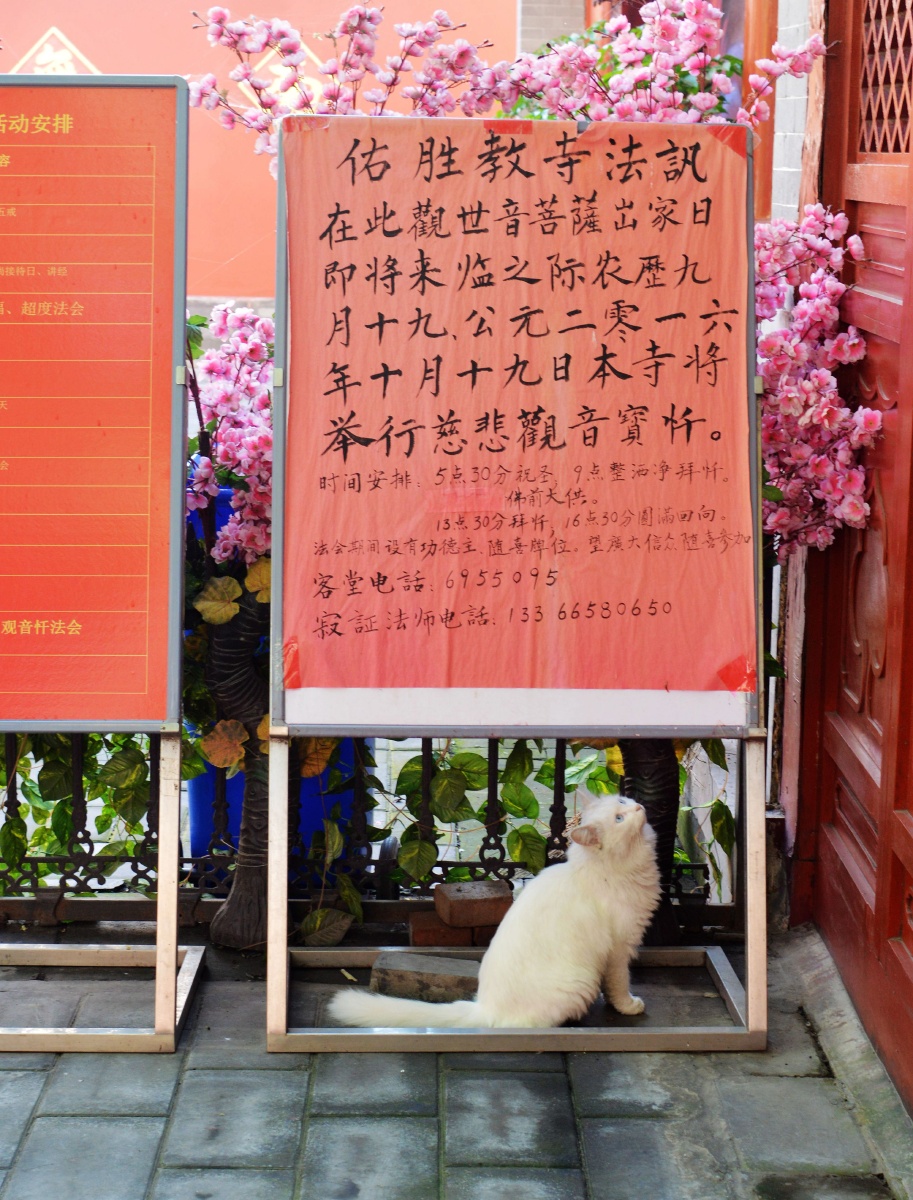 活动安排
容
五戒
接待日、讲经
、超度法会
天
会
观音忏法会
佑胜教寺法訊
在此觀世音菩薩出家日
即将来临之际农歷九
月十九、公元二零一六
年十月十九日本寺将
举行慈悲觀音寶忏。
时间安排：5点30分祝圣，9点整洒净拜忏。
佛前大供。
13点30分拜忏，16点30分圆满回向。
法会期间设有功德主、随喜牌位。望廣大信众随喜参加
客堂电話：6955095
寂証法师电話：13366580650